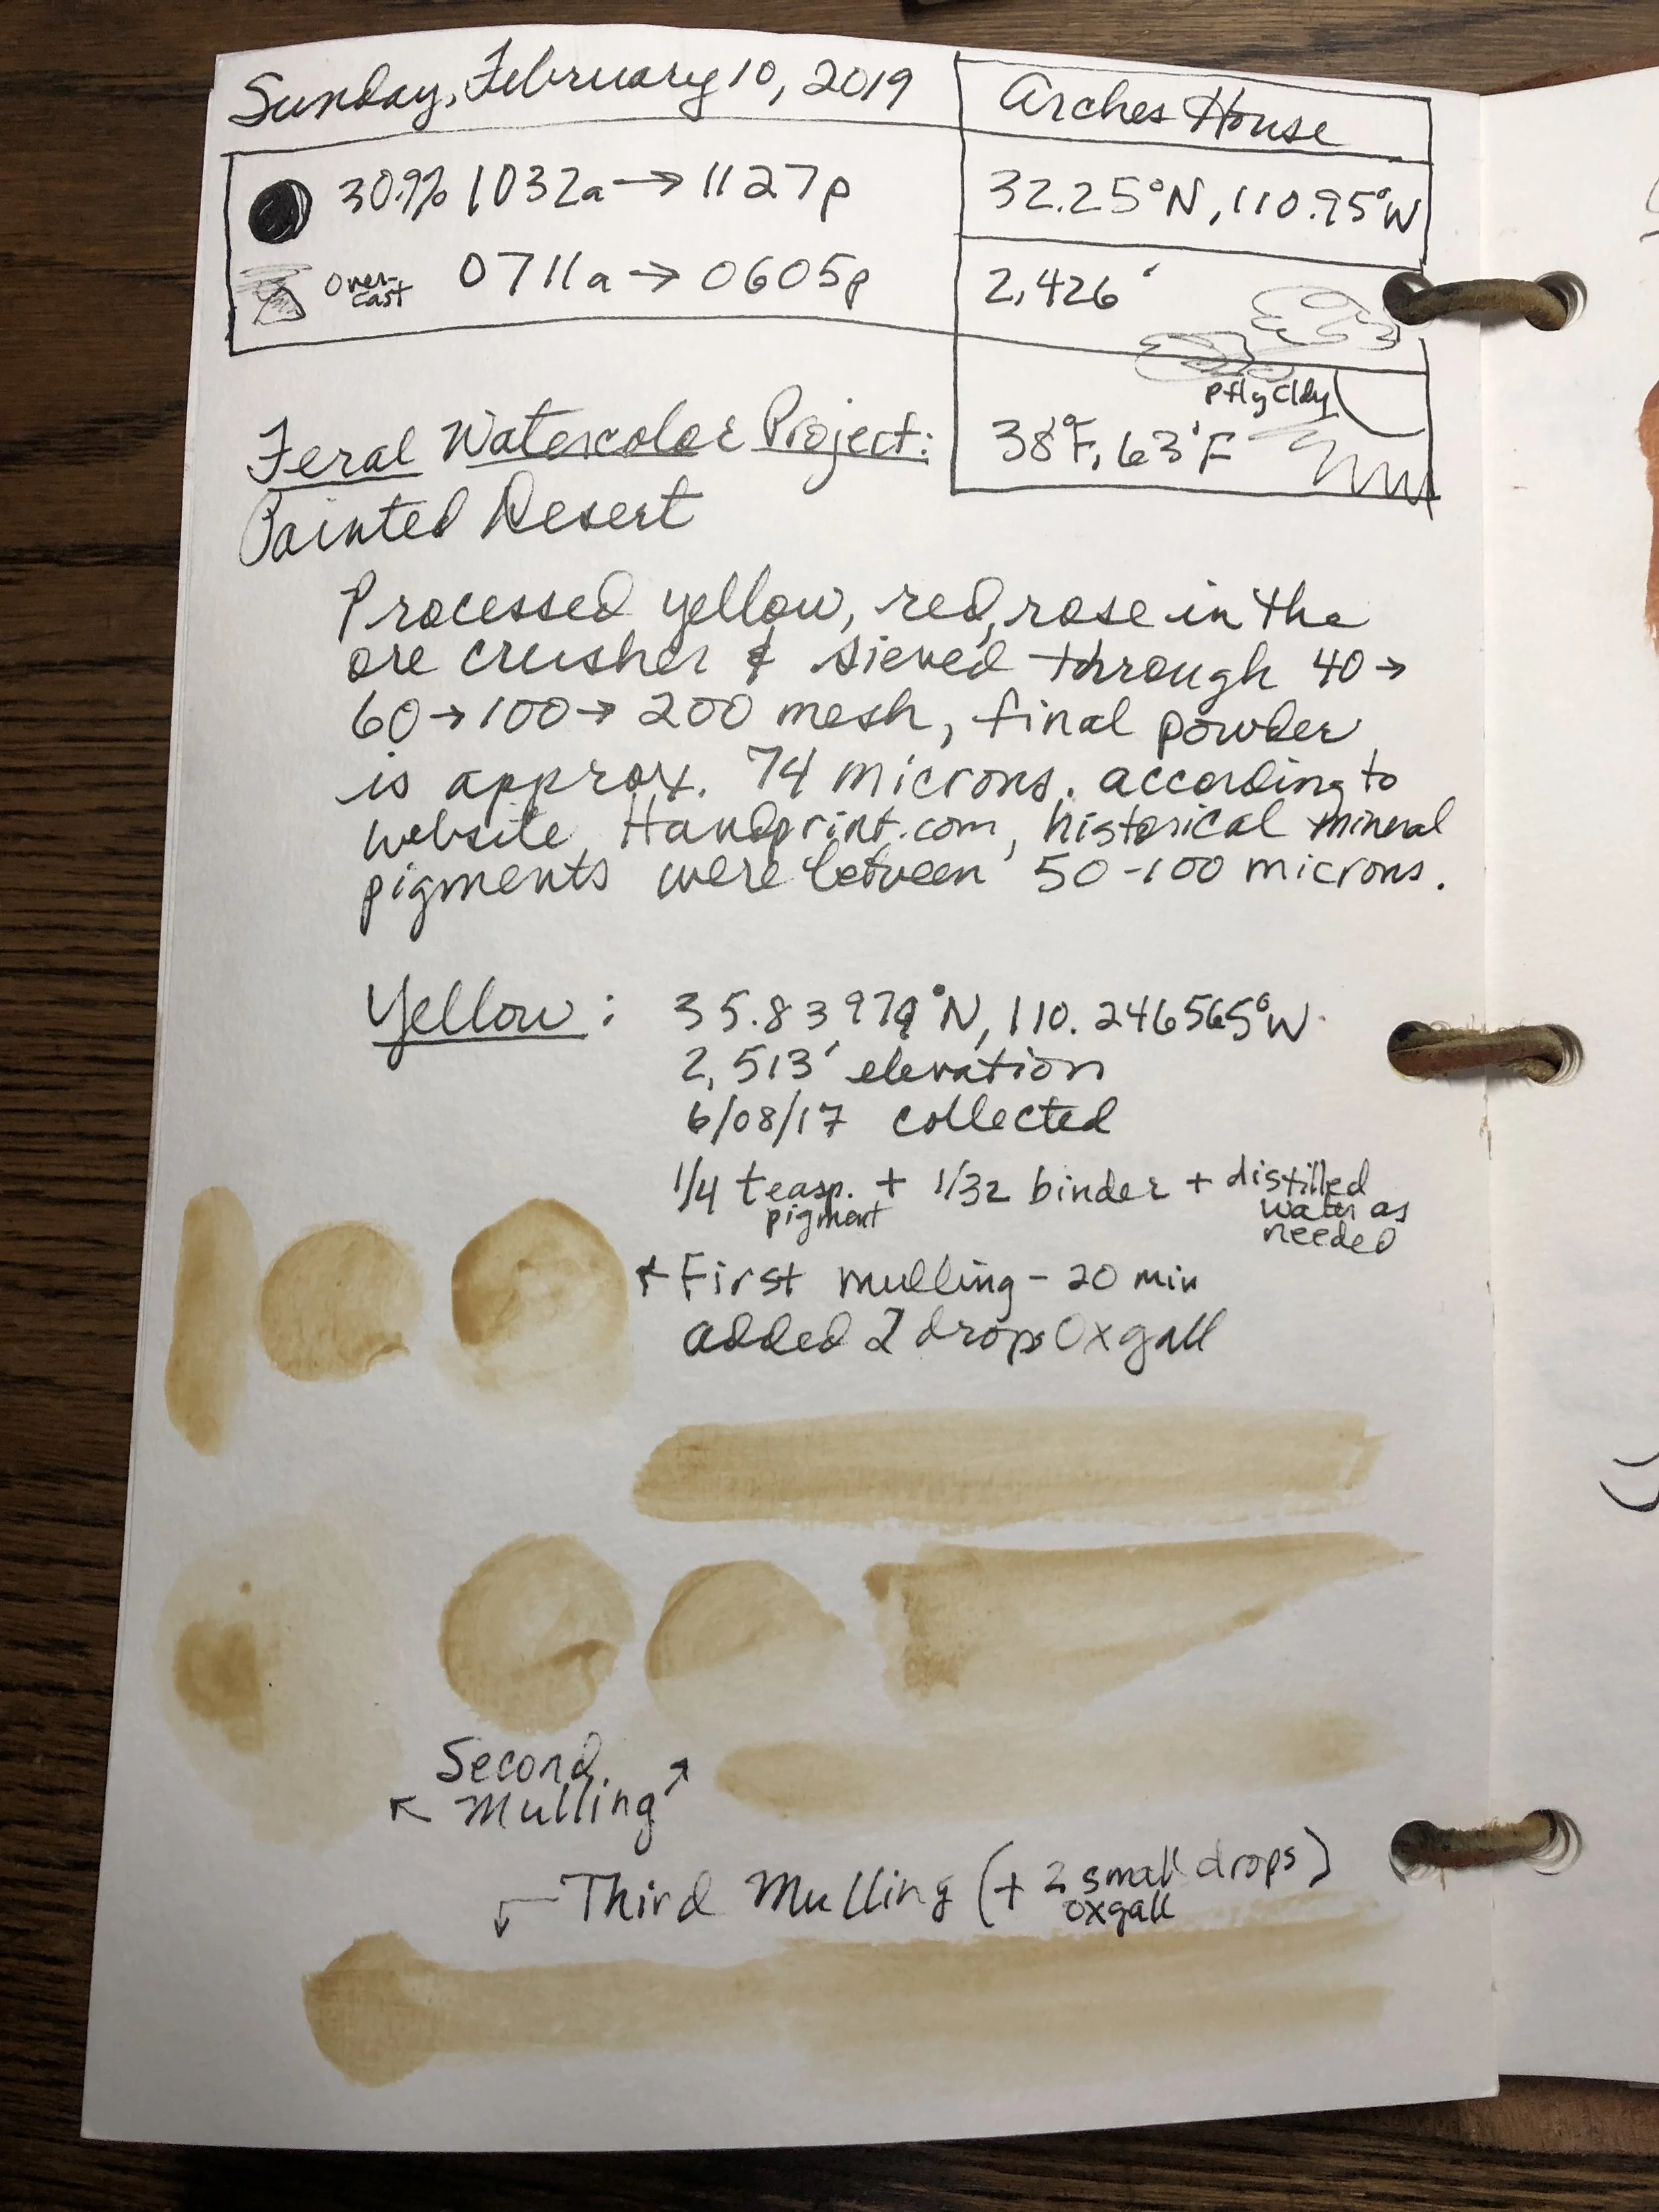 Sunday, February 10, 2019
Arches House
30.9% 1032a → 1127p
32.25°N, 110.95°W
Over-
cast
0711a → 0605p
2,426'
Ptly Cldy
38°F, 63°F
Feral Watercolor Project:
Painted Desert
Processed yellow, red, rose in the
ore crusher & sieved through 40→
60→100→200 mesh, final powder
is approx. 74 microns. according to
website Handprint.com, historical mineral
pigments were between 50-100 microns.
Yellow: 35.83979°N, 110.246565°W
2,513' elevation
6/08/17 collected
1/4 teasp. + 1/32 binder + distilled
pigment
water as
needed
← First mulling - 20 min
added 2 drops Oxgall
Second
↖ Mulling ↗
Third Mulling (+ 2 small drops)
oxgall